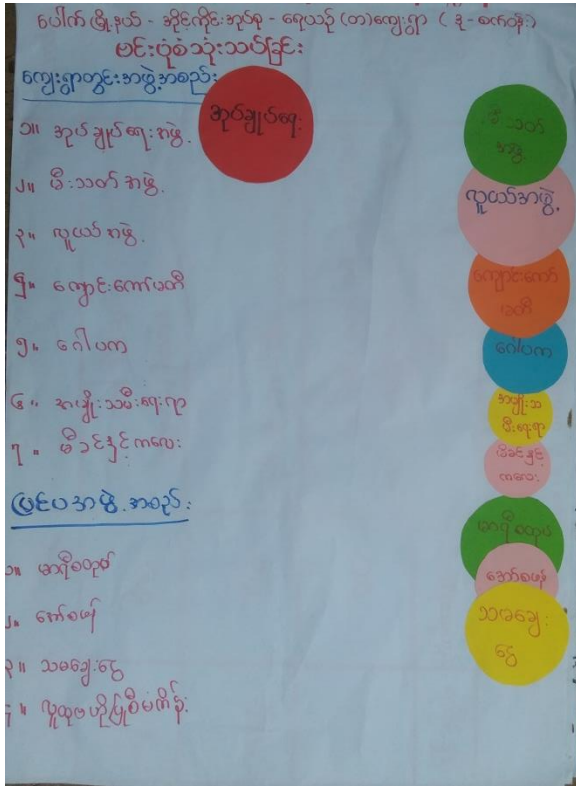 ပေါက်မြို့နယ် - အိုင်ကိုင်းအုပ်စု - ရေယဉ် (တ) ကျေးရွာ ( ဒု - စက်ဝန်း)
ဗင်းပုံစံသုံးသပ်ခြင်း
ကျေးရွာတွင်းအဖွဲ့အစည်း
၁။ အုပ်ချုပ်ရေးအဖွဲ့
၂။ မီးသတ်အဖွဲ့
၃။ လူငယ်အဖွဲ့
၄။ ကျောင်းကော်မတီ
၅။ ဂေါပက
၆။ အမျိုးသမီးရေးရာ
၇။ မိခင်နှင့်ကလေး
ပြင်ပအဖွဲ့အစည်း
၁။ မာရီစတုပ်
၂။ အော်စဖန်
၃။ သမချေးငွေ
၄။ လူထုဗဟိုပြုစီမံကိန်း
အုပ်ချုပ်ရေး
မီးသတ်
အဖွဲ့
လူငယ်အဖွဲ့
ကျောင်းကော်
မတီ
ဂေါပက
အမျိုးသ
မီးရေးရာ
မိခင်နှင့်
ကလေး
မာရီစတုပ်
အော်စဖန်
သမချေး
ငွေ